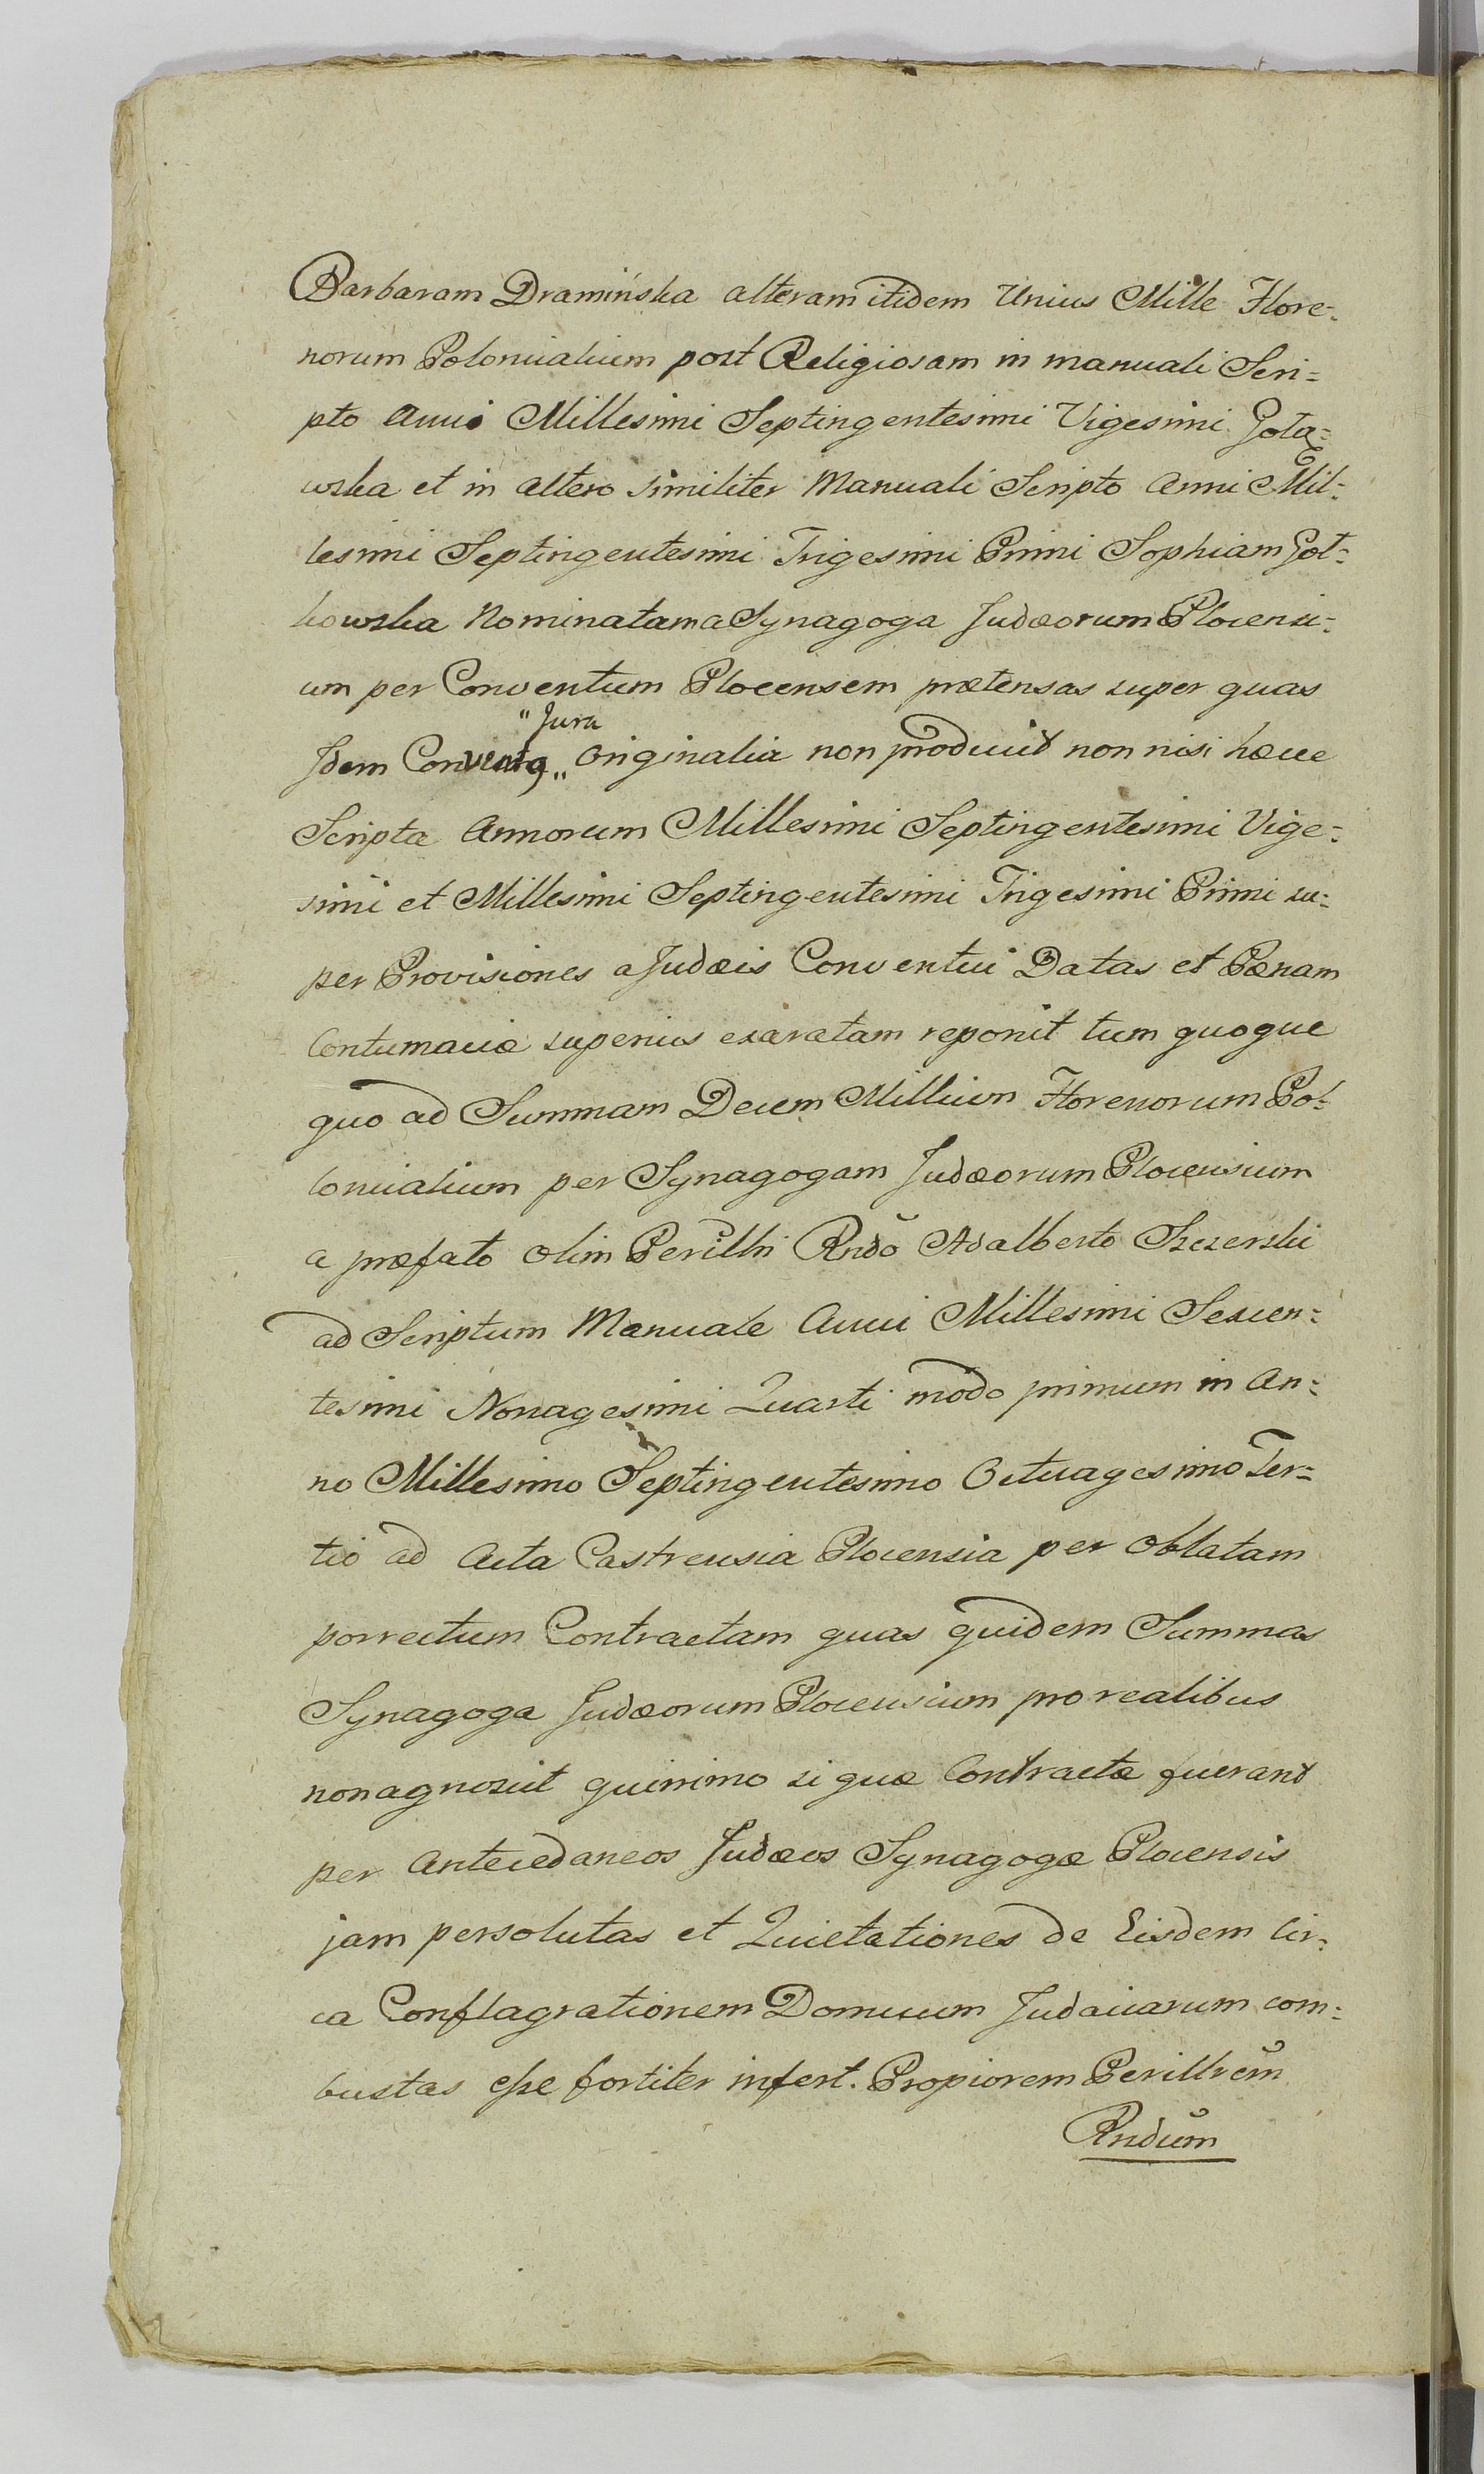 Barbaram Dramińska alteram itidem Unius Mille Flore=
norum Polonicalium post Religiosam in manuali Scri=
pto Anni Millesimi Septingentesimi Vigesimi Gota=
wska et in altero similiter Manuali Scripto Anni Mil=
lesimi Septingentesimi Trigesimi Primi Sophiam Got=
kowska Nominatam a Synagoga Judæorum Plocensi=
um per Conventum Plocensem prætensas super quas
"Jura
Idem Conventus „ Originalia non producit non nisi hæce
Scripta Annorum Millesimi Septingentesimi Vige=
simi et Millesimi Septingentesimi Trigesimi Primi su=
per Provisiones a Judæis Conventui Datas et Pænam
Contumaciæ superius exaratam reponit tum quoque
quo ad Summam Decem Millium Florenorum Pol=
lonicalium per Synagogam Judæorum Plocensium
a præfato olim Perillri Rndō Adalberto Szczerski
ad Scriptum Manuale Anni Millesimi Sexcen=
tesimi Nonagesimi Quarti modo primum in An=
no Millesimo Septingentesimo Octuagesimo Ter=
tio ad Acta Castrensia Plocensia per Oblatam
porrectum Contractam quas quidem Summas
Synagoga Judæorum Plocensium pro realibus
non agnoscit quinimo si quæ Contractæ fuerant
per Antecedaneos Judæos Synagogæ Plocensis
jam persolutas et Quietationes de Eisdem Cir=
ca Conflagrationem Domuum Judaicarum com=
bustas esse fortiter infert. Propiorem Perillrem̃
Rndum̃